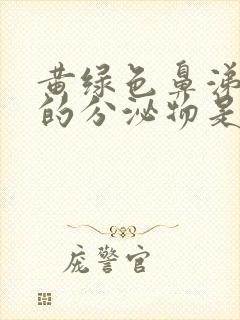 黄绿色鼻涕
的分泌物是
庞警官